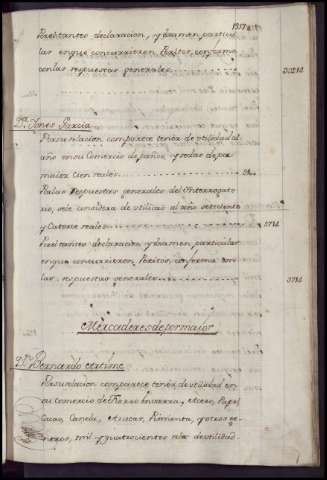 Resultante declaracion, y examen particu
lar en que concurrieron Peritos, conforme
con las respuestas generales
Dn. Ygnes Garcia
Por su relacion comparece tener de utilidad al
año en su Comercio de paños, y sedas de por
maior Cien reales
Por las Respuestas generales del Ynterrogato
rio, se le considera de utilidad al año setecientos
y Catorce reales
Resultantes declaracion y examen, particular
en que concurrieron Peritos, conforme con
las, respuestas generales
Mercaderes de por maior
Dn. Bernardo
Por su relacion comparece tener de utilidad en
su comercio de Fierro en varra, Azero, Papel
Cacao, Canela, Azucar, Pimienta, y otros ge
neros, mil y quatrocientos rs. de utilidad